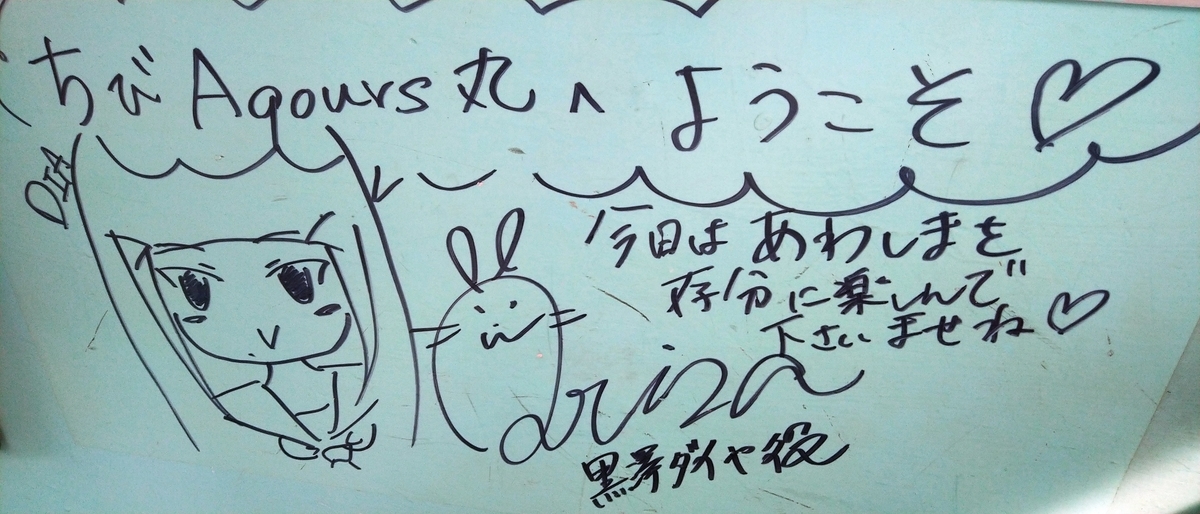 ちびAqours丸へようこそ♡
DIA
今日はあわしまを
存分に楽しんで
下さいませね♡
arisa
黒澤ダイヤ役